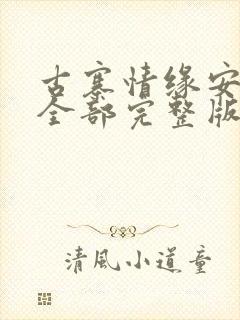 古寨情缘安
全部完整版
清風小道童